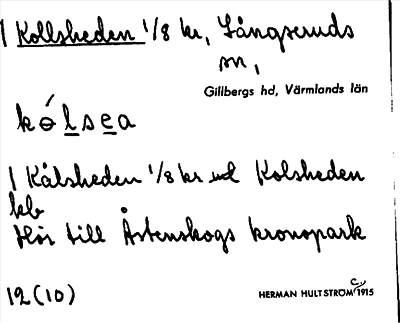 1 Kollsheden 1/8 kr, Långseruds
sn,
Gillbergs hd, Värmlands län
kólsea
1 Kålsheden 1/8 kr Kolsheden
kb
Hör till Åstenskogs kronopark
12 (10)
HERMAN HULTSTRÖM C:a 1915